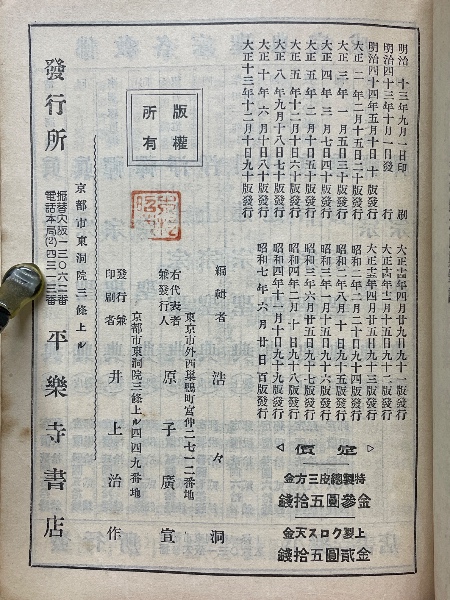 明治四十三年九月一日印刷
明治四十三年十月一日發行
明治四十四年五月十日十版發行
大正二年二月十五日二十版發行
大正三年一月五日三十版發行
大正四年三月七日四十版發行
大正五年二月十日五十版發行
大正五年十二月十日六十版發行
大正八年九月十八日七十版發行
大正十年六月十日八十版發行
大正十三年十二月十日九十版發行
大正十四年四月廿五日九十一版發行
大正十五年十二月十五日九十二版發行
昭和二年四月廿五日九十三版發行
昭和二年二月二十日九十四版發行
昭和二年八月十日九十五版發行
昭和三年一月十五日九十六版發行
昭和三年六月廿五日九十七版發行
昭和四年二月廿日九十八版發行
昭和四年十二月十日九十九版發行
昭和七年六月廿日百版發行
定價
特製總皮三方金
金參圓五拾錢
上製クロス天金
金貳圓五拾錢
版權所有
編輯者 浩々洞
東京市外西巢鴨町宮仲二七一二番地
右代表者兼發行人 原子廣宣
京都市東洞院三條上ル四四九番地
發行兼印刷者 井上治作
京都市東洞院三條上ル
發行所 平樂寺書店
振替大阪一三〇六二番
電話本局(2)四三一三番